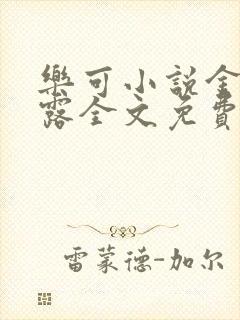 樂可小說金
露全文免費
雷蒙德-加尔